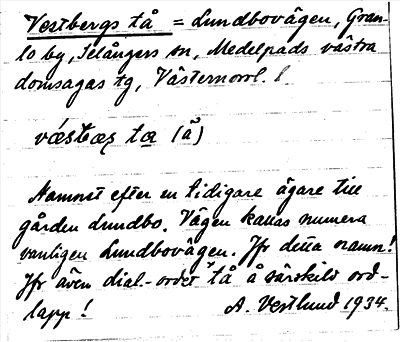 Vestbergs tå = Lundbovägen, Gran-
lo by, Selångers sn, Medelpads västra
domsagas tg, Västernorrl. l.
væ̀stbæʒ ta (ã)
Namnet efter en tidigare ägare till
gården Lundbo. Vägen kallas numera
vanligen Lundbovägen. Jfr detta namn!
Jfr även dial.-ordet tå å särskild ord-
lapp! A. Vestlund 1934.